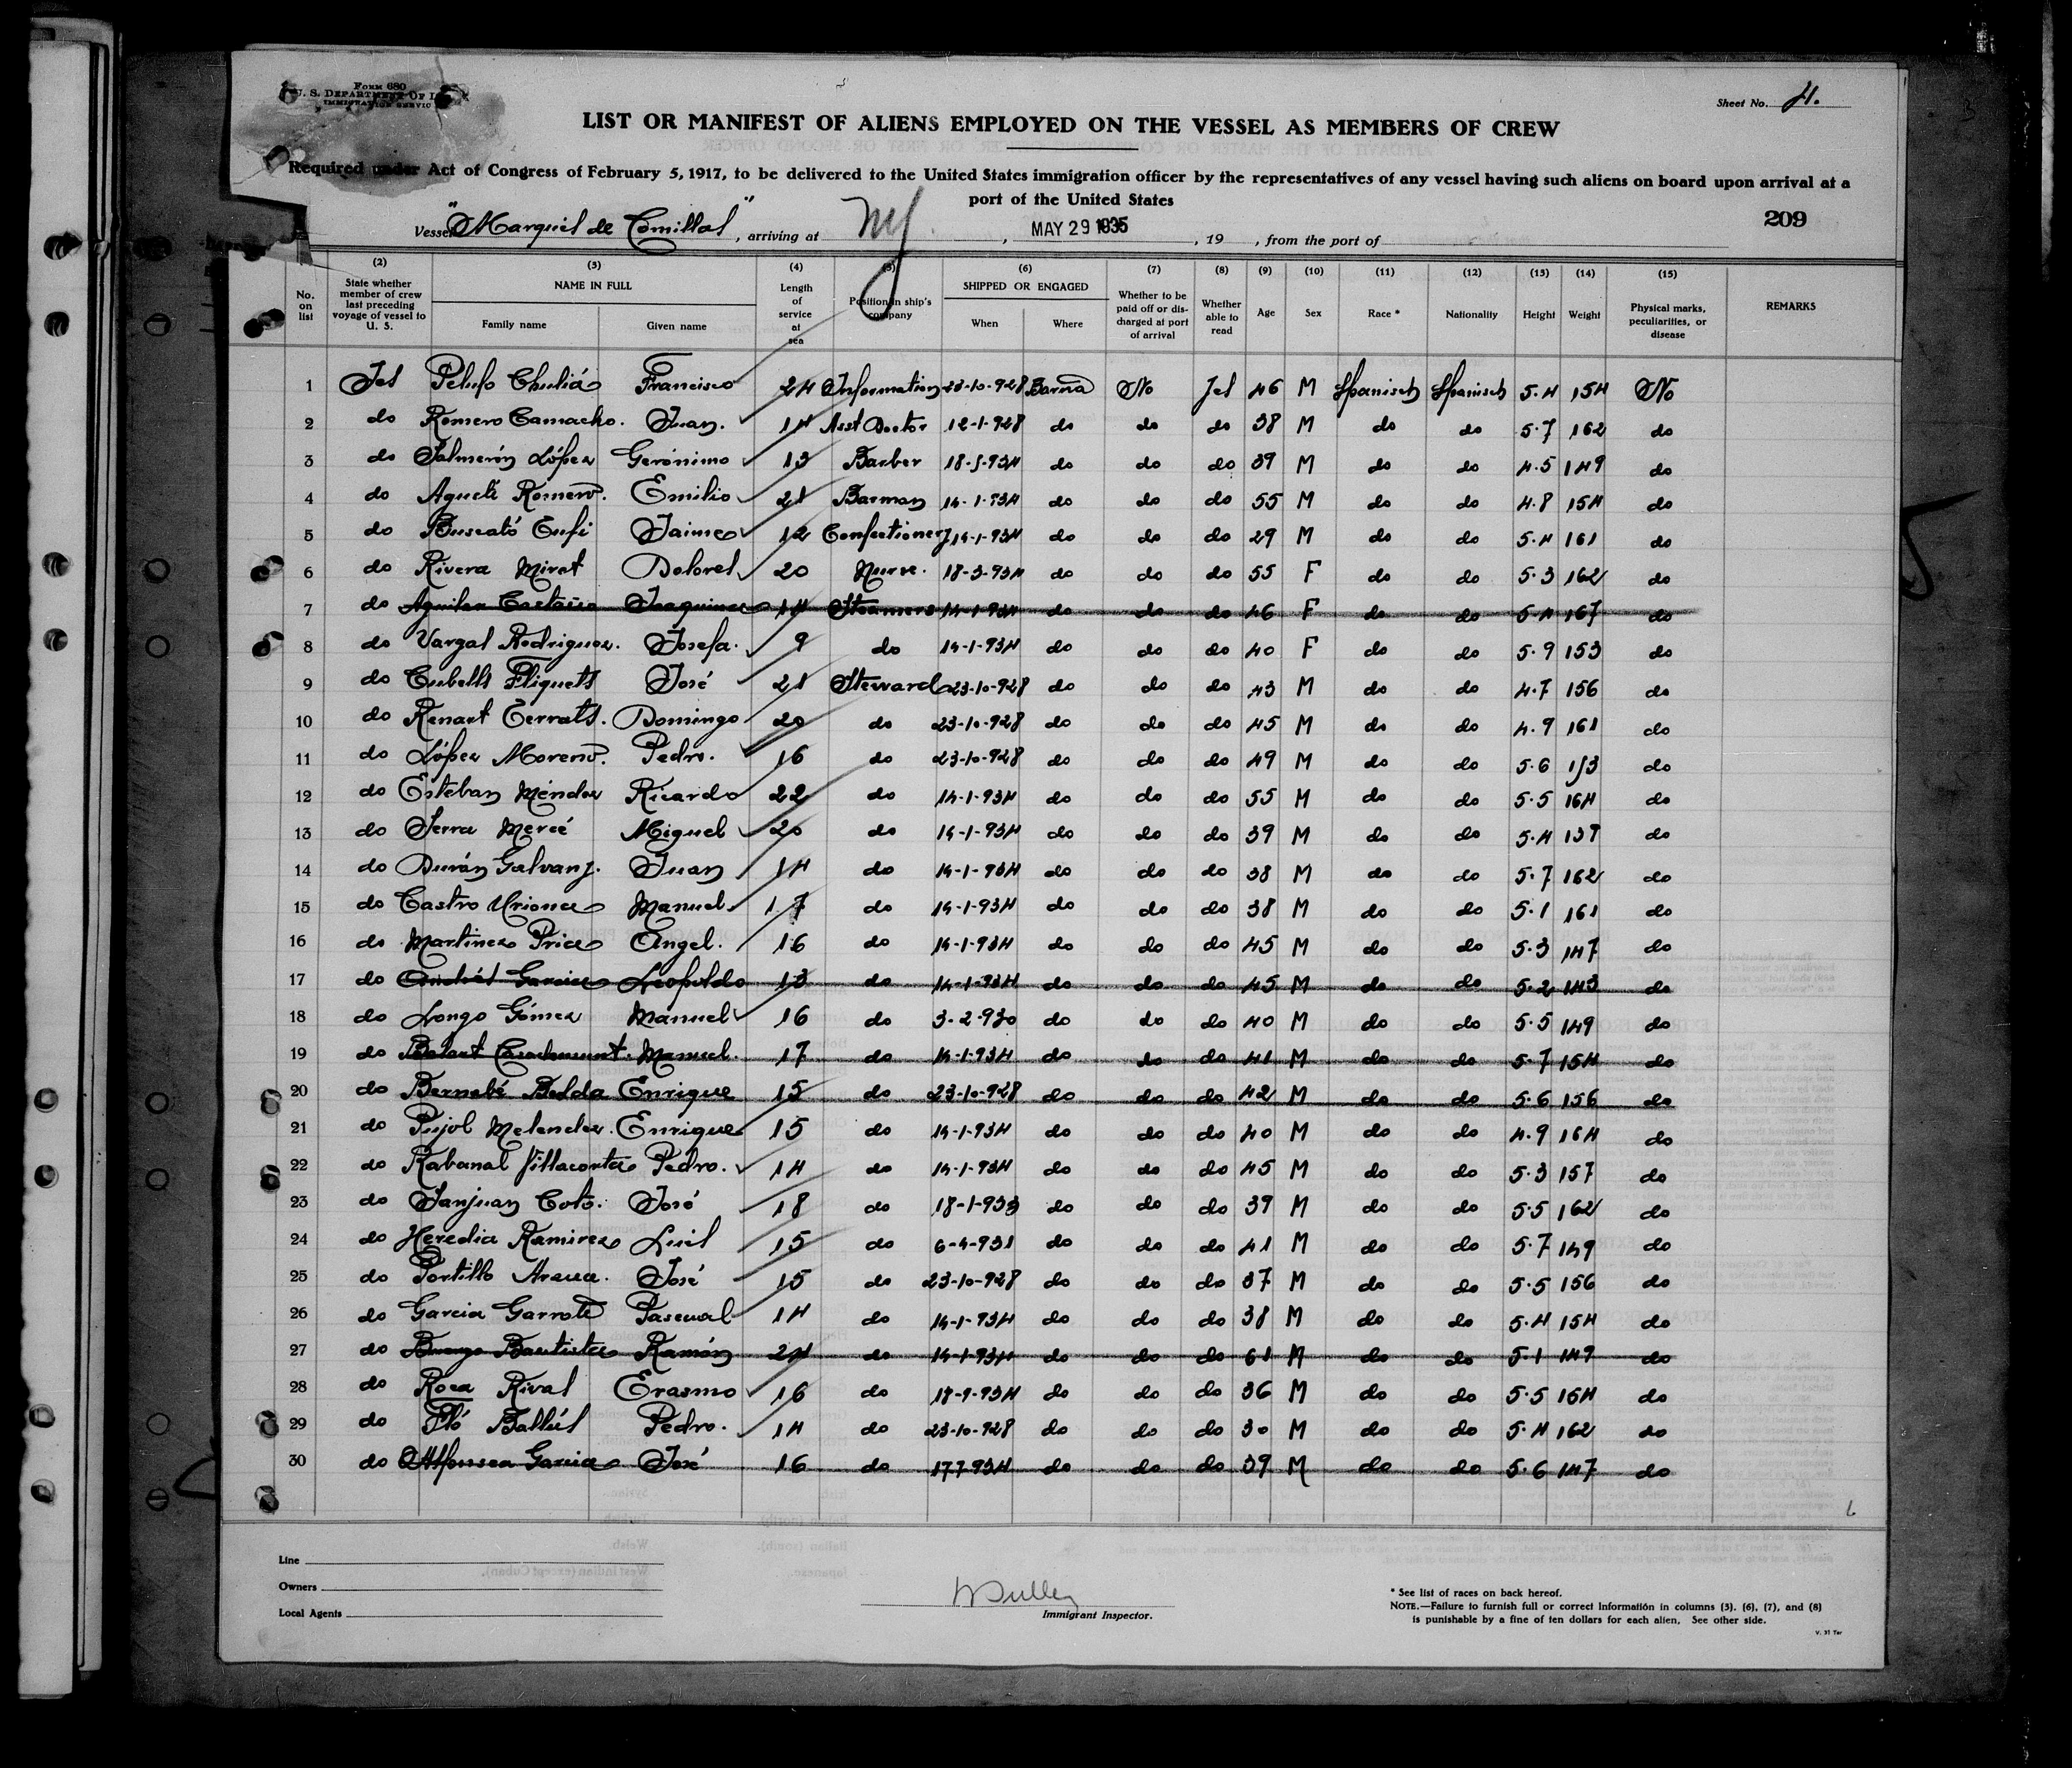 Form 680
U. S. Department Of
Immigration Servic
Sheet No. 4.
LIST OR MANIFEST OF ALIENS EMPLOYED ON THE VESSEL AS MEMBERS OF CREW
Required under Act of Congress of February 5, 1917, to be delivered to the United States immigration officer by the representatives of any vessel having such aliens on board upon arrival at a
port of the United States
209
Vessel "Marqués de Comillas", arriving at NY, MAY 29 1935, 19 , from the port of
(2) (3) (4) (5) (6) (7) (8) (9) (10) (11) (12) (13) (14) (15)
No. on list State whether member of crew last preceding voyage of vessel to U. S. NAME IN FULL Family name Given name Length of service at sea Position in ship's company SHIPPED OR ENGAGED When Where Whether to be paid off or discharged at port of arrival Whether able to read Age Sex Race * Nationality Height Weight Physical marks, peculiarities, or disease REMARKS
1 Yes Pelufo Chuliá Francisco 24 Information 23-10-928 Barna No Yes 46 M Spanisch Spanisch 5.4 154 No
2 do Romero Camacho. Juan. 14 Asst Doctor 12-1-928 do do do 38 M do do 5.7 162 do
3 do Salmerón López Gerónimo 13 Barber 18-5-934 do do do 39 M do do 4.5 149 do
4 do Romero. Emilio 21 Barman 14-1-934 do do do 55 M do do 4.8 154 do
5 do Buscató Jaime 12 Confectioner 14-1-934 do do do 29 M do do 5.4 161 do
6 do Rivera Mirat Dolores 20 Nurse. 18-3-934 do do do 55 F do do 5.3 162 do
7 do Aguilar Joaquina 14 14-1-934 do do do 46 F do do 5.4 167 do
8 do Vargas Rodriguez. Josefa. 9 do 14-1-934 do do do 40 F do do 5.9 153 do
9 do Cubells Pliguets José 21 Steward 23-10-928 do do do 43 M do do 4.7 156 do
10 do Renart Domingo 20 do 23-10-928 do do do 45 M do do 4.9 161 do
11 do López Moreno. Pedro. 16 do 23-10-928 do do do 49 M do do 5.6 do
12 do Esteban Méndez Ricardo 22 do 14-1-934 do do do 55 M do do 5.5 164 do
13 do Serra Mercé Miguel 20 do 14-1-934 do do do 39 M do do 5.4 137 do
14 do Durán Galvany. Juan 14 do 14-1-934 do do do 38 M do do 5.7 162 do
15 do Castro Urionez Manuel 17 do 14-1-934 do do do 38 M do do 5.1 161 do
16 do Martinez Angel. 16 do 14-1-934 do do do 45 M do do 5.3 147 do
17 do Andrés Garcia Leopoldo 13 do 14-1-934 do do do 45 M do do 5.2 143 do
18 do Longo Gómez Manuel 16 do 3-2-930 do do do 40 M do do 5.5 149 do
19 do Manuel. 17 do 14-1-934 do do do 41 M do do 5.7 154 do
20 do Bernabé Belda Enrique 15 do 23-10-928 do do do 42 M do do 5.6 156 do
21 do Pujol Melendez. Enrique 15 do 14-1-934 do do do 40 M do do 4.9 164 do
22 do Rabanal Villacorta Pedro. 14 do 14-1-934 do do do 45 M do do 5.3 157 do
23 do Sanjuan Coto. José 18 do 18-1-933 do do do 39 M do do 5.5 162 do
24 do Heredia Ramirez Luis 15 do 6-4-931 do do do 41 M do do 5.7 149 do
25 do Portillo José 15 do 23-10-928 do do do 37 M do do 5.5 156 do
26 do Garcia Garrote Pascual 14 do 14-1-934 do do do 38 M do do 5.4 154 do
27 do Bautista Ramón 24 do 14-1-934 do do do 61 M do do 5.1 149 do
28 do Roca Rival Erasmo 16 do 17-9-934 do do do 36 M do do 5.5 154 do
29 do Pló Ballús Pedro. 14 do 23-10-928 do do do 30 M do do 5.4 162 do
30 do Alfonsea Garcia José 16 do 17-7-934 do do do 39 M do do 5.6 147 do
Line
Owners
Local Agents
Immigrant Inspector.
* See list of races on back hereof.
NOTE.—Failure to furnish full or correct information in columns (3), (6), (7), and (8)
is punishable by a fine of ten dollars for each alien. See other side.
V. 31 Ter